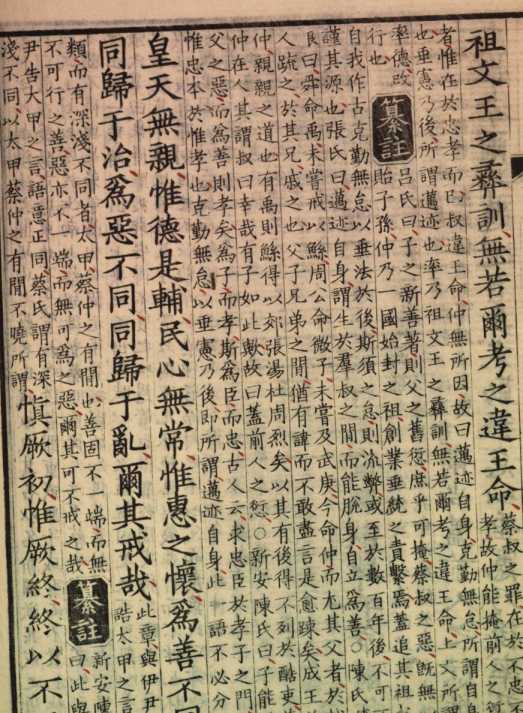 祖文王之彝訓無若爾考之違王命
蔡叔之罪在於不忠不
孝故仲能掩前人之愆
者惟在於忠孝而已叔違王命仲無所因故曰邁迹自身克勤無怠所謂自身
也垂憲乃後所謂邁迹也率乃祖文王之彝訓無若爾考之違王命上文所謂
率德改
行也
纂註
呂氏曰子之新善著則父之舊愆庶乎可掩蔡叔之惡旣無
貽子孫仲乃一國始封之祖創業垂統之責繫焉蓋追其祖
自我作古克勤無怠以垂法於後斯須之怠則流弊或至於數百年後不可
謹其源也張氏曰邁迹自身謂生於羣叔之間而能脫身自立爲善○陳氏
曰舜命禹未嘗戒以鯀周公命微子未嘗及武庚今命仲而尤其父者於
人踈之於其兄戚之也父子兄弟之間猶有諱而不敢盡言是愈踈矣成王
仲親親之道也有禹則鯀得以郊張湯杜周烈矣以其有後得不列於酷吏
仲在人其謂叔曰幸哉有子如此歟故曰蓋前人之愆○新安陳氏曰子能
父之惡而爲善則孝矣爲子而孝斯爲臣而忠古人云求忠臣於孝子之門
惟忠本於惟孝也克勤無怠以垂憲乃後即所謂邁迹自身此一語不必分
皇天無親惟德是輔民心無常惟惠之懷爲善不同
同歸于治爲惡不同同歸于亂爾其戒哉
此章與伊尹
誥太甲之言
類而有深淺不同者太甲蔡仲之有間也善固不一端而無
不可行之善惡亦不一端而無可爲之惡爾其可不戒之哉
纂註
新安陳
曰此與
尹告太甲之言語意正同蔡氏謂有深
淺不同以太甲蔡仲之有間不曉所謂
愼厥初惟厥終終以不